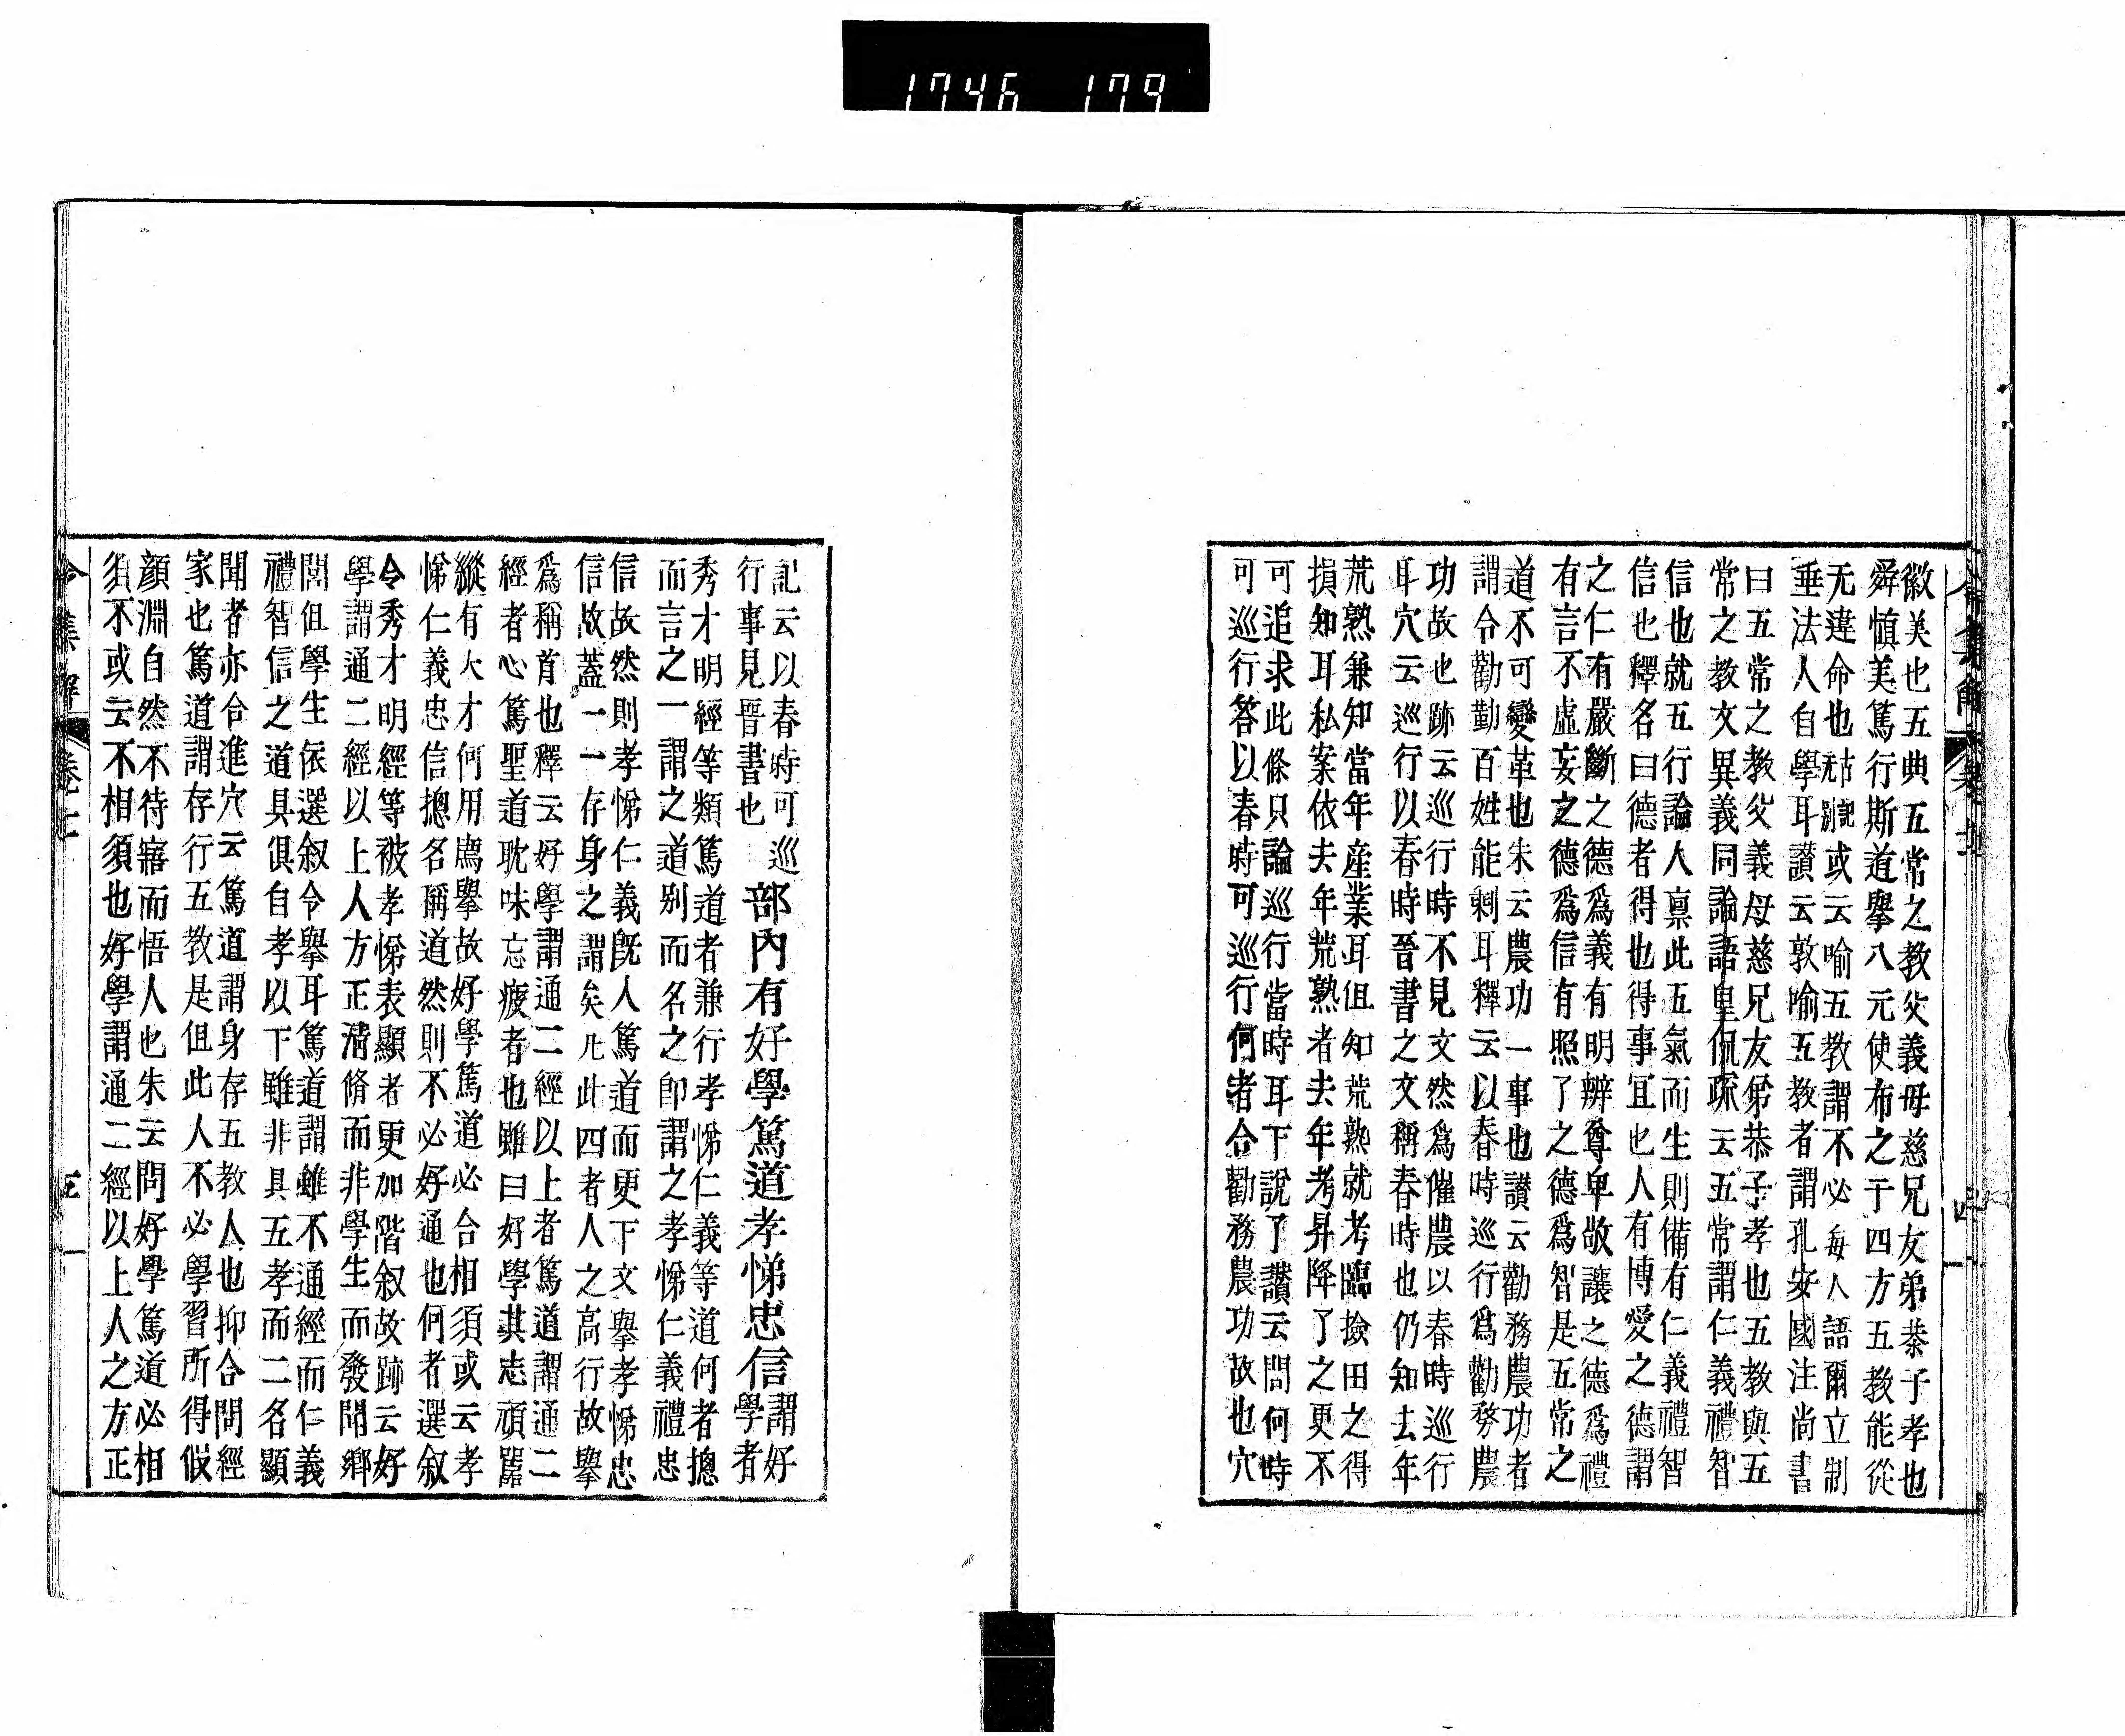 1746 179
徽美也五典五常之教父義母慈兄友弟恭子孝也
舜愼美篤行斯道擧八元使布之于四方五教能從
无違命也或云喻五教謂不必每人語爾立制
垂法人自學耳讃云敦喻五教者謂孔安國注尚書
曰五常之教父義母慈兄友弟恭子孝也五教與五
常之教文異義同論語皇侃疏云五常謂仁義禮智
信也就五行論人禀此五氣而生則備有仁義禮智
信也釋名曰德者得也得事冝也人有博愛之德謂
之仁有嚴斷之德爲義有明辨尊卑敬讓之德爲禮
有言不虛妄之德爲信有照了之德爲智是五常之
道不可變革也朱云農功一事也讃云勸務農功者
謂令勸勤百姓能剩耳釋云以春時巡行爲勸務農
功故也跡云巡行時不見文然爲催農以春時巡行
耳穴云巡行以春時晉書之文稱春時也仍知去年
荒熟兼知當年産業耳但知荒熟就考臨撿田之得
損知耳私案依去年荒熟者去年考昇降了之更不
可追求此條只論巡行當時耳下說了讃云問何時
可巡行答以春時可巡行何者合勸務農功故也穴
記云以春時可巡
行事見晉書也
部內有好學篤道孝悌忠信
謂好
學者
秀才明經等類篤道者兼行孝悌仁義等道何者摠
而言之一謂之道別而名之卽謂之孝悌仁義禮忠
信故然則孝悌仁義旣人篤道而更下文擧孝悌忠
信故蓋一一存身之謂矣凡此四者人之高行故擧
爲稱首也釋云好學謂通二經以上者篤道謂通二
經者心篤聖道耽味忘疲者也雖曰好學其志頑嚚
縱有大才何用薦擧故好學篤道必合相須或云孝
悌仁義忠信摠名稱道然則不必好通也何者選叙
令秀才明經等被孝悌表顯者更加階叙故跡云好
學謂通二經以上人方正淸脩而非學生而發聞鄕
閭但學生依選叙令擧耳篤道謂雖不通經而仁義
禮智信之道具俱自孝以下雖非具五孝而二名顯
聞者亦合進穴云篤道謂身存五教人也抑合問經
家也篤道謂存行五教是但此人不必學習所得假
顏淵自然不待寤而悟人也朱云問好學篤道必相
須不或云不相須也好學謂通二經以上人之方正